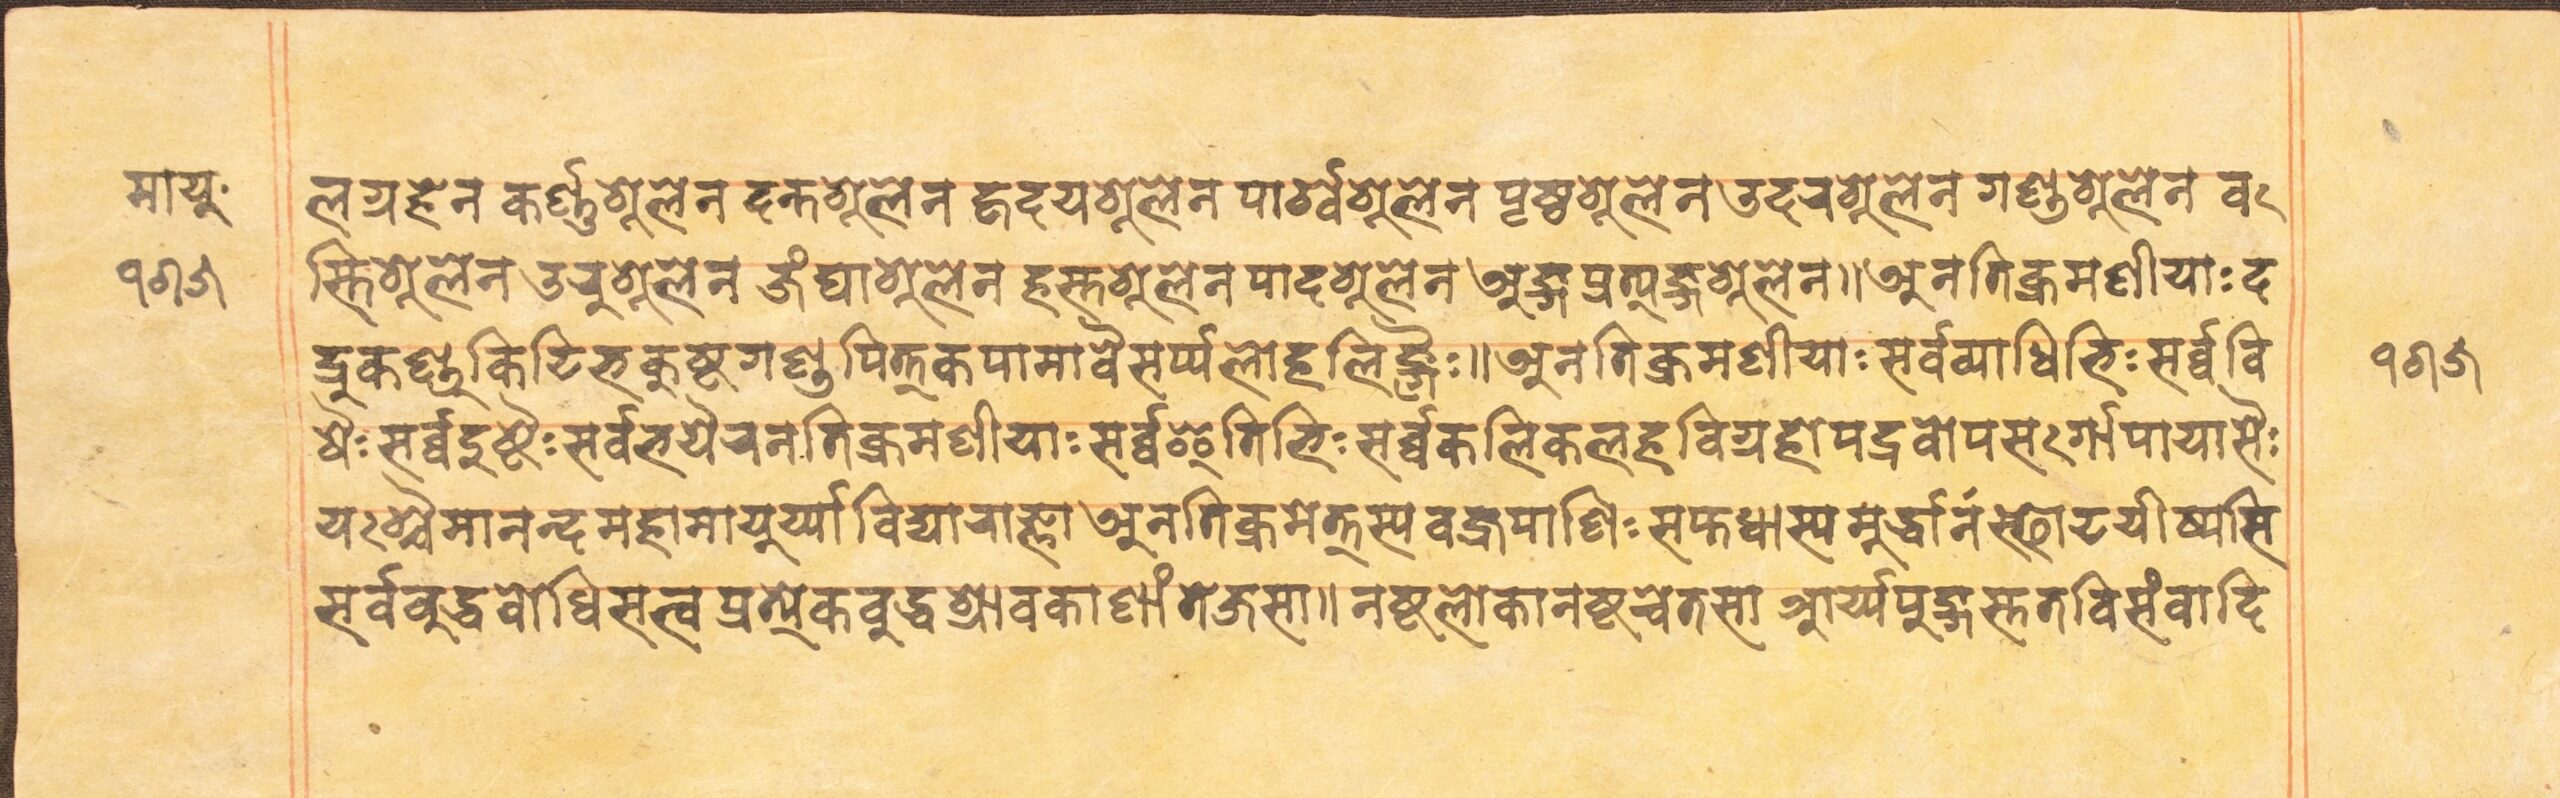 मायु
लग्रहेन कर्ण्णशूलेन दन्तशूलेन हृदयशूलेन पार्श्वशूलेन पृष्ठशूलेन उदरशूलेन गण्डशूलेन व
१७९
स्तिशूलेन उरुशूलेन जंघाशूलेन हस्तशूलेन पादशूलेन अङ्गप्रत्यङ्गशूलेन॥ अनतिक्रमणीयाः द
द्रुकण्डुकिटिभकुष्टगण्डपित्तकपामावैसर्प्पलोहलिङ्गैः॥ अनतिक्रमणीयाः सर्वव्याधिभिः सर्व्ववि
षैः सर्व्वदुष्टैः सर्वभयैरनतिक्रमणीयाः सर्व्वईतिभिः सर्व्वकलिकलहविग्रहोपद्रवोपसर्गापायासैः
यश्चैमानन्दमहामायुर्य्याविद्याराज्ञा अनतिक्रमेत्तस्य वज्रपाणिः सप्तधास्य मुर्द्धानंस्फोटयीष्यसि
सर्वबुद्धबोधिसत्वप्रत्येकबुद्धश्रावकाणां तेजसा॥ नष्टलोकानष्टचेतसा आर्य्यपुङ्गस्ततविसंवादि